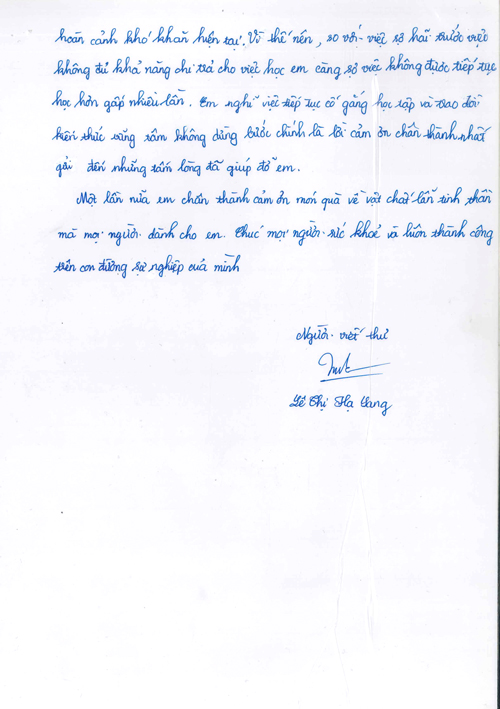 hoàn cảnh khó khăn hiện tại. Vì thế nên, so với việc sợ hãi trước việc
không đủ khả năng chi trả cho việc học em càng sợ việc không được tiếp tục
học hơn gấp nhiều lần. Em nghĩ việc tiếp tục cố gắng học tập và trao dồi
kiến thức vững tâm không dừng bước chính là lời cảm ơn chân thành nhất
gửi đến những tấm lòng đã giúp đỡ em.
Một lần nữa em chân thành cảm ơn món quà về vật chất lẫn tinh thần
mà mọi người dành cho em. Chúc mọi người sức khoẻ và luôn thành công
trên con đường sự nghiệp của mình
Người viết thư
Lê Thị Hạ